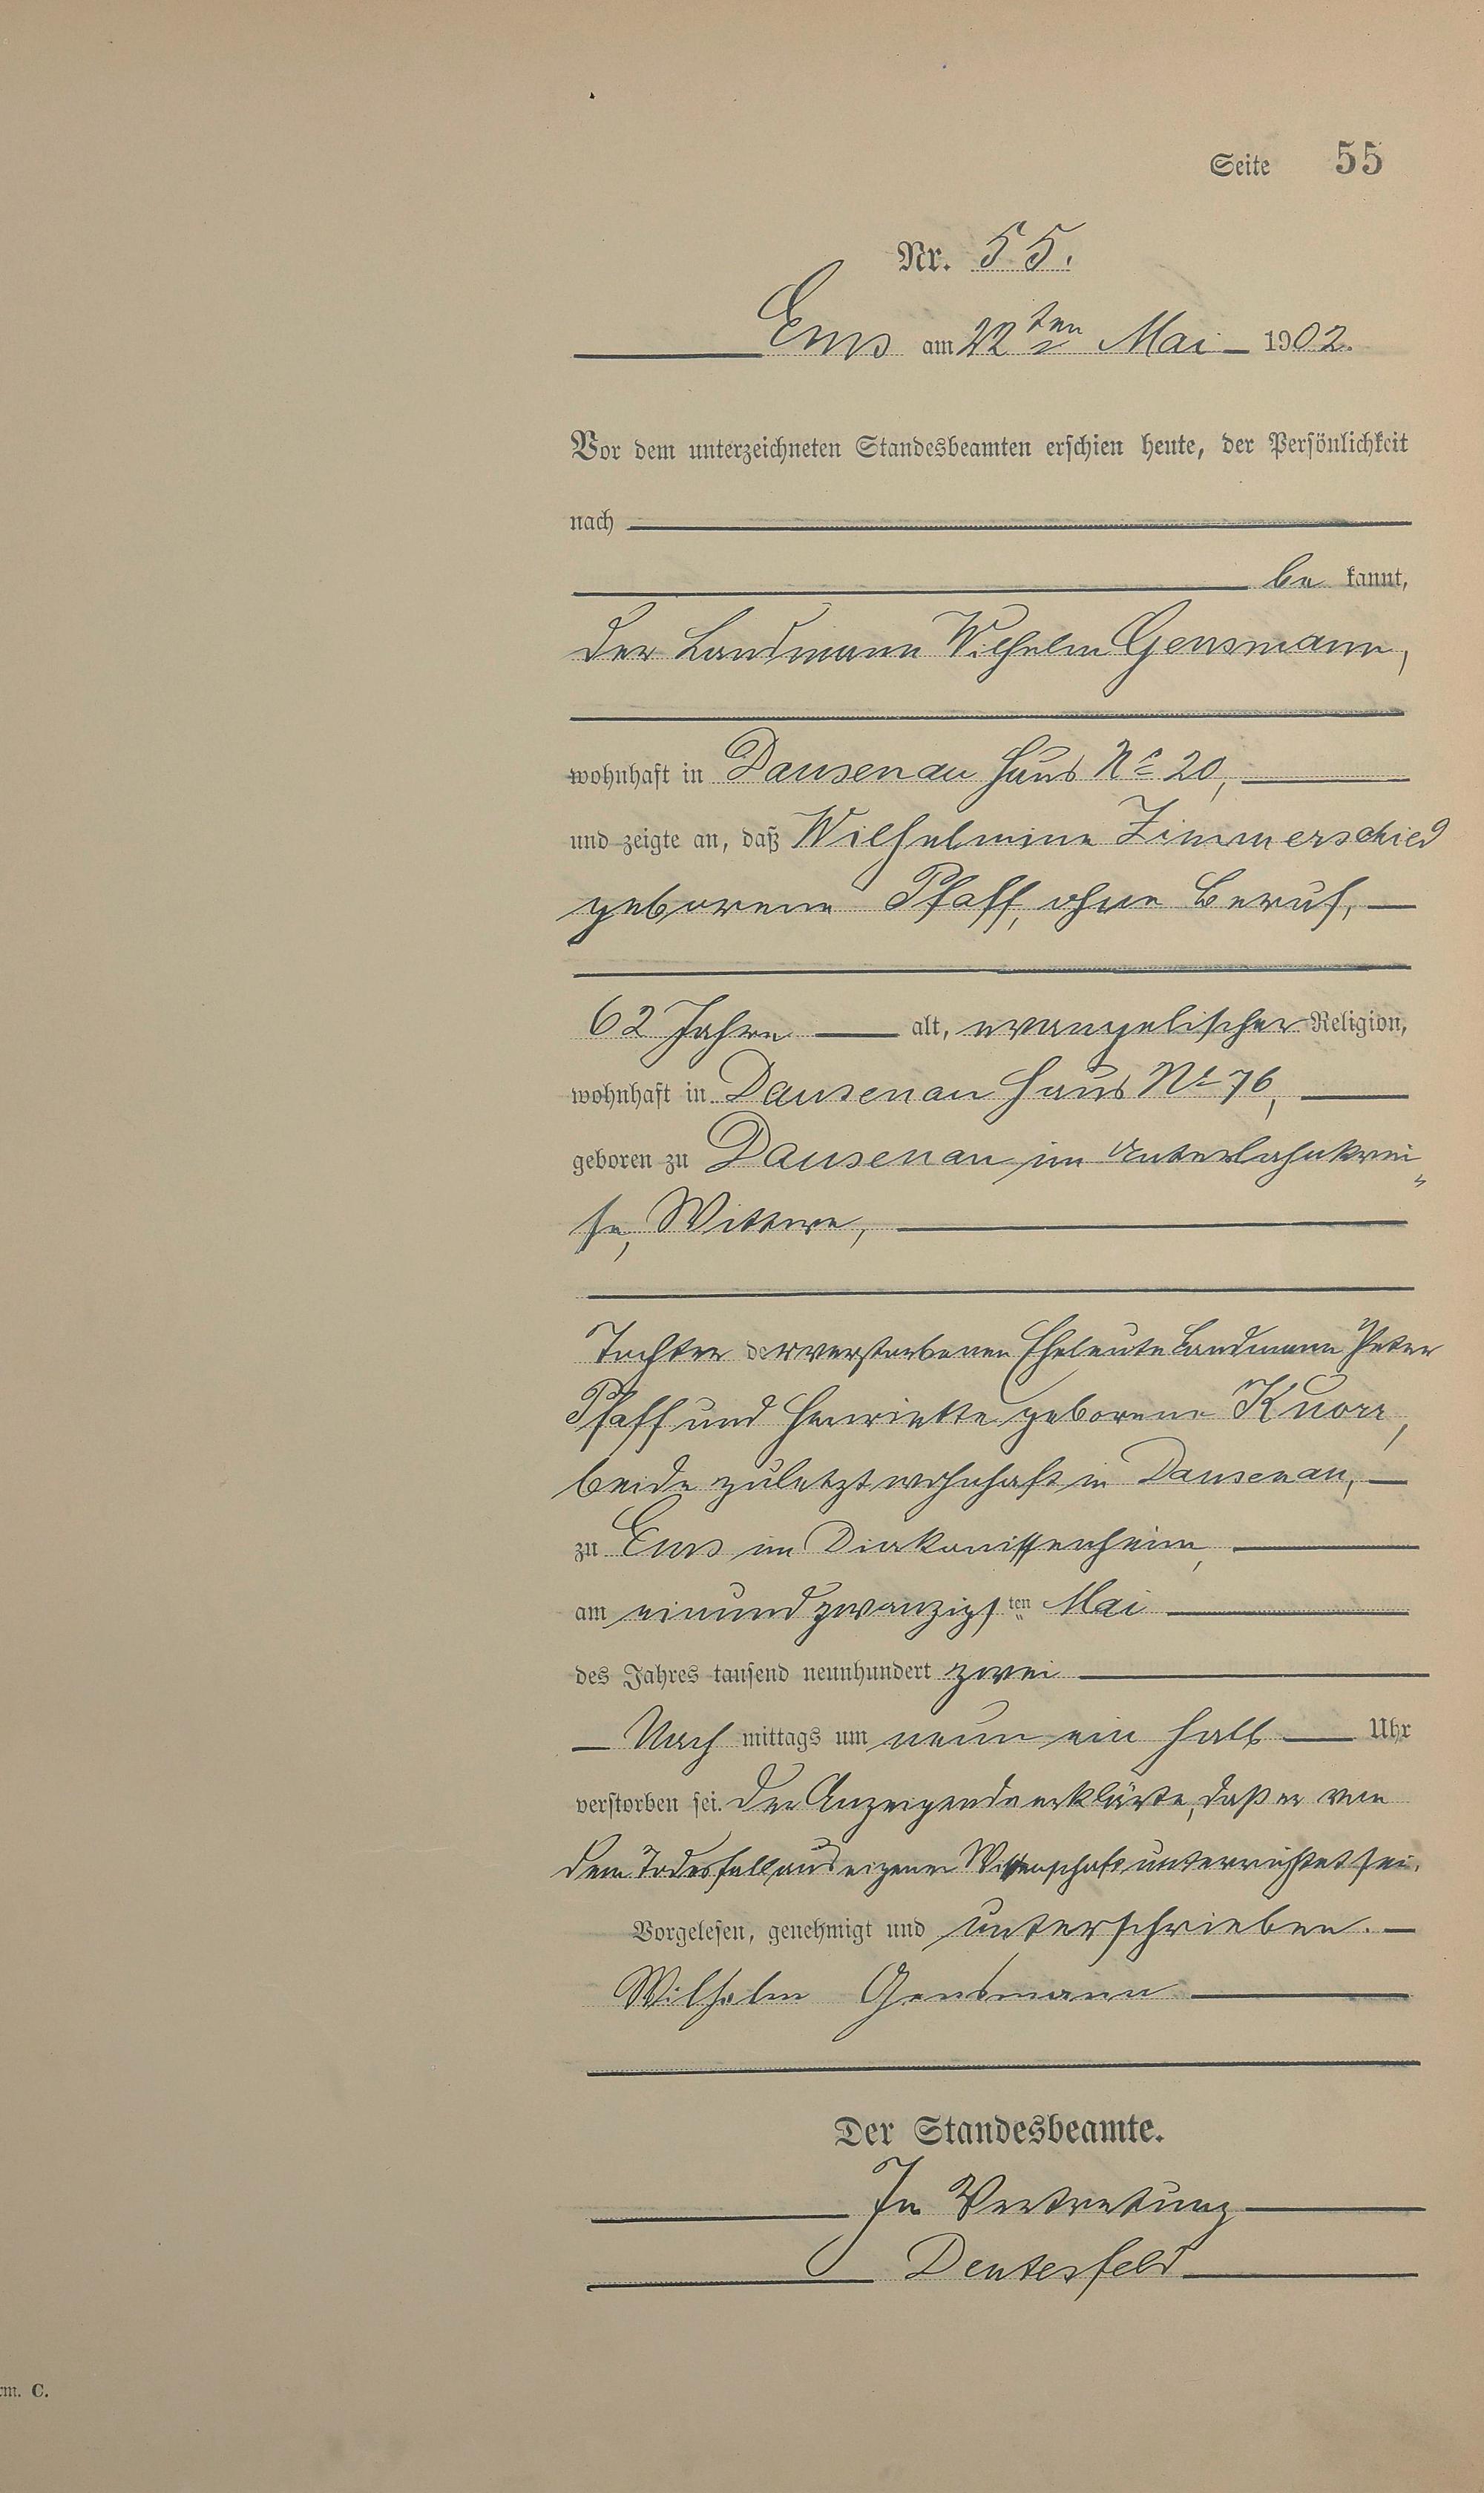 Seite 55
Nr. 55.
Ems am 22ten Mai 1902.
Vor dem unterzeichneten Standesbeamten erschien heute, der Persönlichkeit
nach
be kannt,
der Landmann Wilhelm Gensmann,
wohnhaft in Dausenau Haus No 20,
und zeigte an, daß Wilhelmine Zimmerschied
geborene Pfaff, ohne Beruf,
62 Jahre alt, evangelischer Religion,
wohnhaft in Dausenau Haus No 76,
geboren zu Dausenau im Unterlahnkrei„
se, Wittwe,
Tochter der verstorbenen Eheleute Landmann Peter
Pfaff und Henriette geborene Knorr,
beide zuletzt wohnhaft in Dausenau,
zu Ems im Diakonissenheim,
am einundzwanzigsten Mai
des Jahres tausend neunhundert zwei
Nach mittags um neun ein halb Uhr
verstorben sei. Der Anzeigende erklärte, daß er von
dem Todesfall aus eigener Wissenschaft unterrichtet sei.
Vorgelesen, genehmigt und unterschrieben.
Wilhelm Gensmann
Der Standesbeamte.
In Vertretung
Deutesfeld
rm. C.